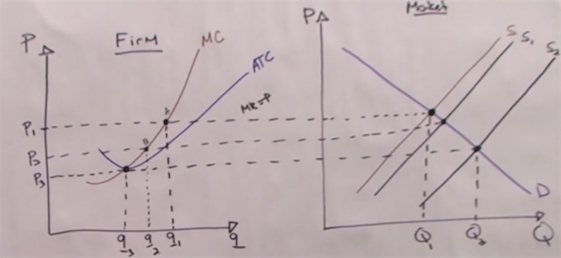 Firm
P
MC
ATC
MR=P
A
B
P₁
P₂
P₃
q₃
q₂
q₁
q
Market
P
S
S₁
S₂
D
Q₁
Q₃
Q